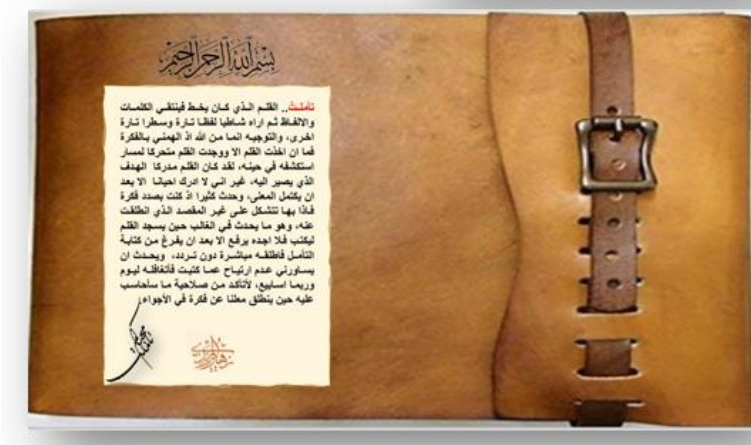 بسم الله الرحمن الرحيم
تأملت.. القلم الذي كان يخط فينتقي الكلمات
والالفاظ ثم اراه شاطبا لفظا تارة وسطرا تارة
اخرى، والتوجيه انما من الله اذ الهمني بالفكرة
فما ان اخذت القلم الا ووجدت القلم متحركا لمسار
استكشفه في حينه، لقد كان القلم مدركا الهدف
الذي يصير اليه، غير اني لا ادرك احيانا الا بعد
ان يكتمل المعنى، وحدث كثيرا اذ كنت بصدد فكرة
فاذا بها تتشكل على غير المقصد الذي انطلقت
عنه، وهو ما يحدث في الغالب حين يسجد القلم
ليكتب فلا اجده يرفع الا بعد ان يفرغ من كتابة
التأمل فاطلقه مباشرة دون تردد، ويحدث ان
يساورني عدم ارتياح عما كتبت فأتغافله ليوم
وربما اسابيع، لأتأكد من صلاحية ما سأحاسب
عليه حين ينطلق معلنا عن فكرة في الأجواء.